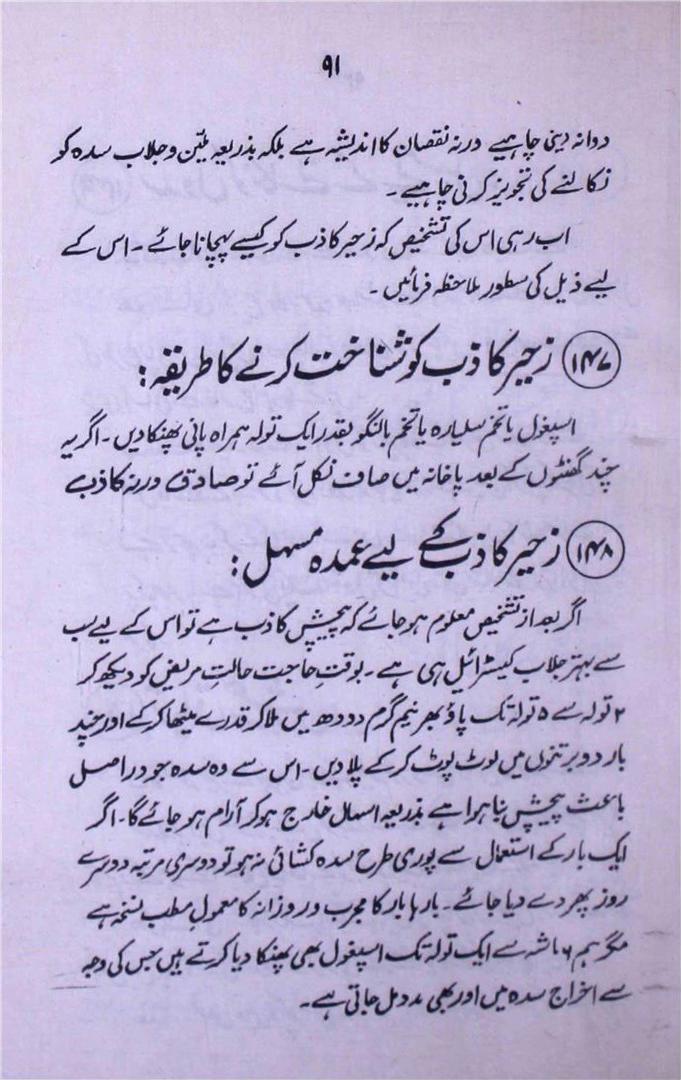 ۹۱
دوا نہ دینی چاہیے ورنہ نقصان کا اندیشہ ہے بلکہ بذریعہ ملیّن و جلاب سدہ کو
نکالنے کی تجویز کرنی چاہیے۔
اب رہی اس کی تشخیص کہ زحیر کاذب کو کیسے پہچانا جائے۔ اس کے
لیے ذیل کی سطور ملاحظہ فرمائیں۔
۱۴۷ زحیر کاذب کو شناخت کرنے کا طریقہ:
اسپغول یا تخم سلیارہ یا تخم بالنگو بقدر ایک تولہ ہمراہ پانی پھنکا دیں۔ اگر یہ
چند گھنٹوں کے بعد پاخانہ میں صاف نکل آئے تو صادق ورنہ کاذب
۱۴۸ زحیر کاذب کے لیے عمدہ مسہل:
اگر بعد از تشخیص معلوم ہو جائے کہ پیچش کاذب ہے تو اس کے لیے سب
سے بہتر جلاب کیسٹرائیل ہی ہے۔ بوقتِ حاجت حالتِ مریض کو دیکھ کر
۲ تولہ سے ۵ تولہ تک پاؤ بھر نیم گرم دودھ میں ملا کر قدرے میٹھا کر کے اور چند
بار دو برتنوں میں لوٹ پوٹ کر کے پلا دیں۔ اس سے وہ سدہ جو دراصل
باعث پیچش بنا ہوا ہے بذریعہ اسہال خارج ہو کر آرام ہو جائے گا۔ اگر
ایک بار کے استعمال سے پوری طرح سدہ کشائی نہ ہو تو دوسری مرتبہ دوسرے
روز پھر دے دیا جائے۔ بارہا بار کا مجرب و روزانہ کا معمولِ مطب نسخہ ہے
مگر ہم ۶ ماشہ سے ایک تولہ تک اسپغول بھی پھنکا دیا کرتے ہیں جس کی وجہ
سے اخراج سدہ میں اور بھی مدد مل جاتی ہے۔